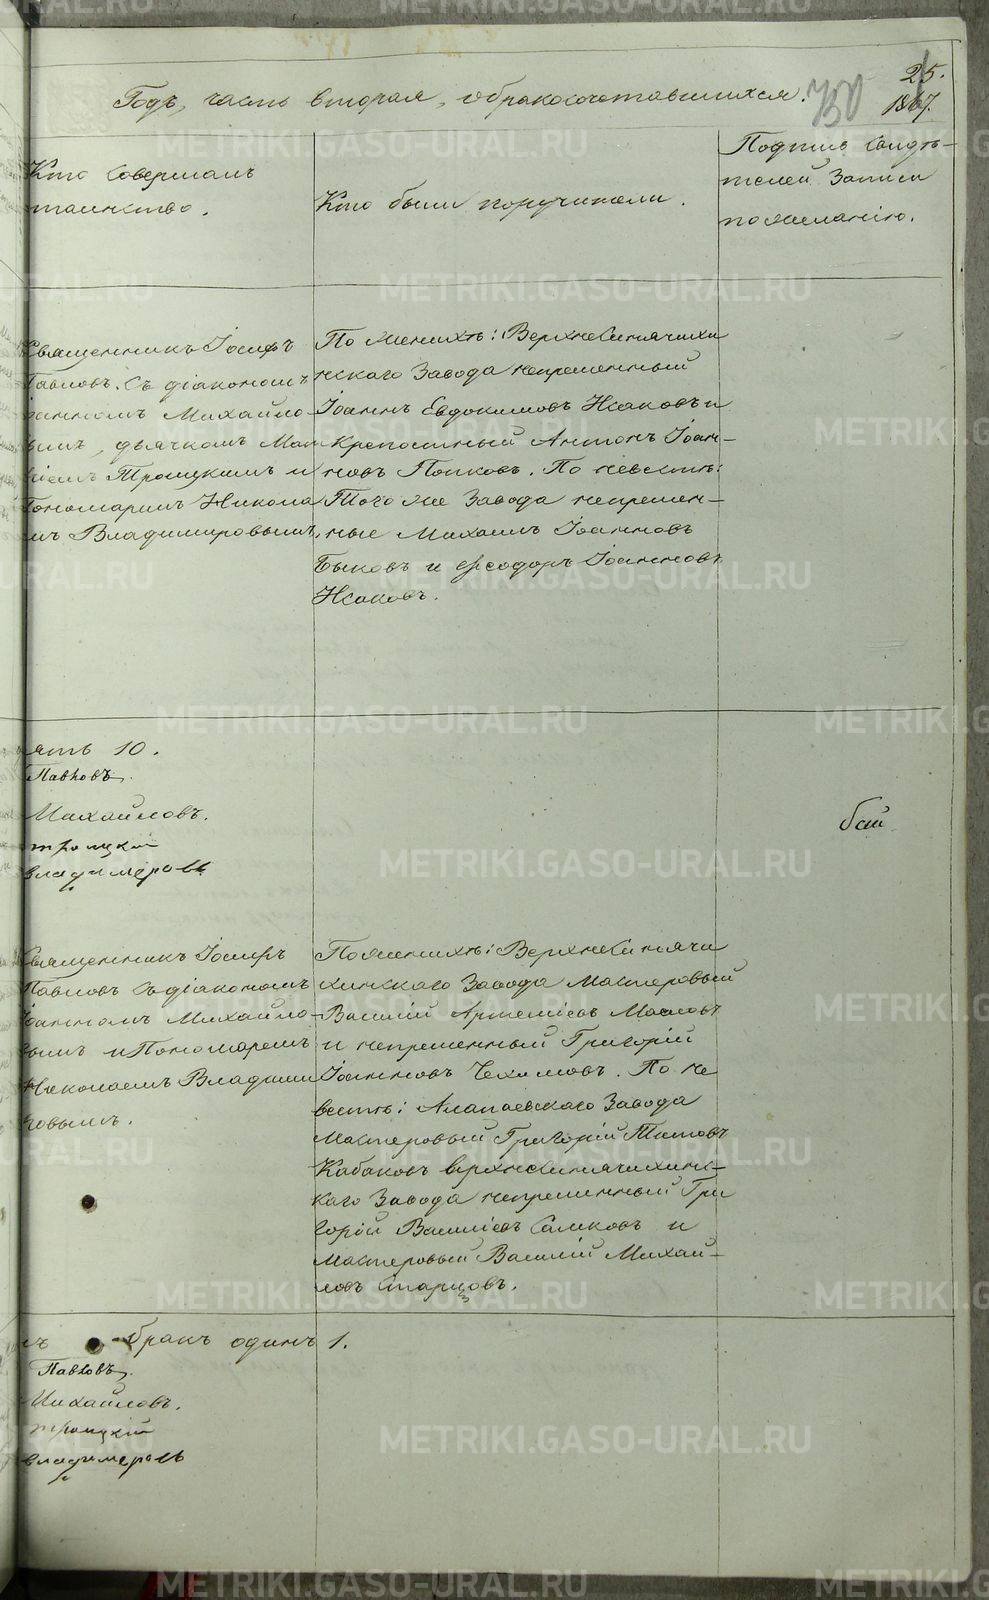 25.
Годъ, часть вторая, о бракосочетавшихся.
730
1867.
Кто совершалъ
таинство.
Кто были поручители.
Подпись свидѣ-
телей записи
по желанію.
Священникъ Іосифъ
Павловъ съ діакономъ
Іоанномъ Михайло-
вымъ, дьячкомъ
Троицкимъ и
Пономаремъ Никола
мъ Владимировымъ.
По женихѣ: Верхнесинячихи
нскаго Завода непременный
Іоаннъ Евдокимовъ Исаковъ и
крепостный Антонъ Іоан-
новъ Попковъ. По невѣсте:
Того же Завода непремен-
ные Михаилъ Іоанновъ
Быковъ и Ѳеодоръ Іоанновъ
Исаковъ.
ять 10.
Павловъ.
Михайловъ.
троицкій
владимеровъ
Священникъ Іосифъ
Павловъ съ діакономъ
Іоанномъ Михайло-
вымъ и Пономаремъ
Николаемъ Владими
ровымъ.
По женихѣ: Верхнесинячи
хинскаго Завода Мастеровый
Василій Артеміевъ Масловъ
и непременный Григорій
Іоанновъ Чехомовъ. По не
вестѣ: Алапаевскаго Завода
Мастеровый Григорій Титовъ
Кабаковъ верхнесинячихинс-
каго Завода непременный Гри
горій Василіевъ Саликовъ и
мастеровый Василій Михай-
ловъ Старцовъ.
бракъ одинъ 1.
Павловъ.
Михайловъ.
троицкій
владимеровъ
METRIKI.GASO-URAL.RU